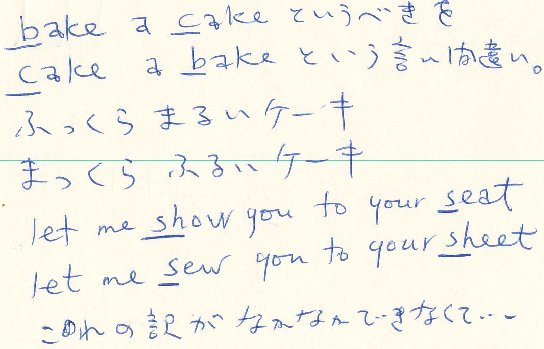 bake a cake というべきを
cake a bake という言い間違い。
ふっくら まるいケーキ
まっくら ふるいケーキ
let me show you to your seat
let me sew you to your sheet
これの訳がなかなかできなくて・・